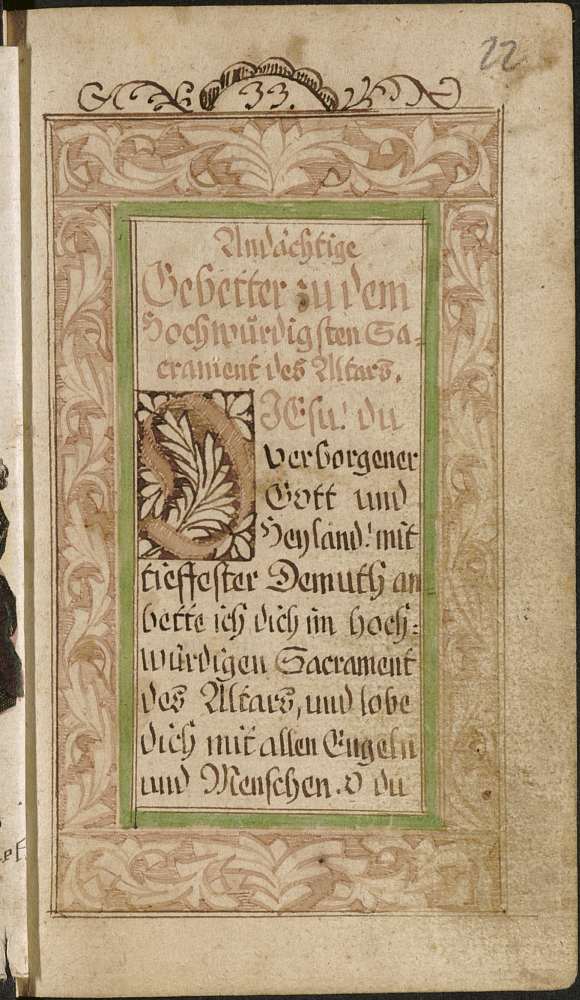 22
33.
Andächtige
Gebetter zu dem
Hochwürdigsten Sa-
crament des Altars.
O JEsu! du
verborgener
Gott und
Heyland! mit
tieffester Demuth an
bette ich dich im hoch:
würdigen Sacrament
des Altars, und lobe
dich mit allen Engeln
und Menschen. O du